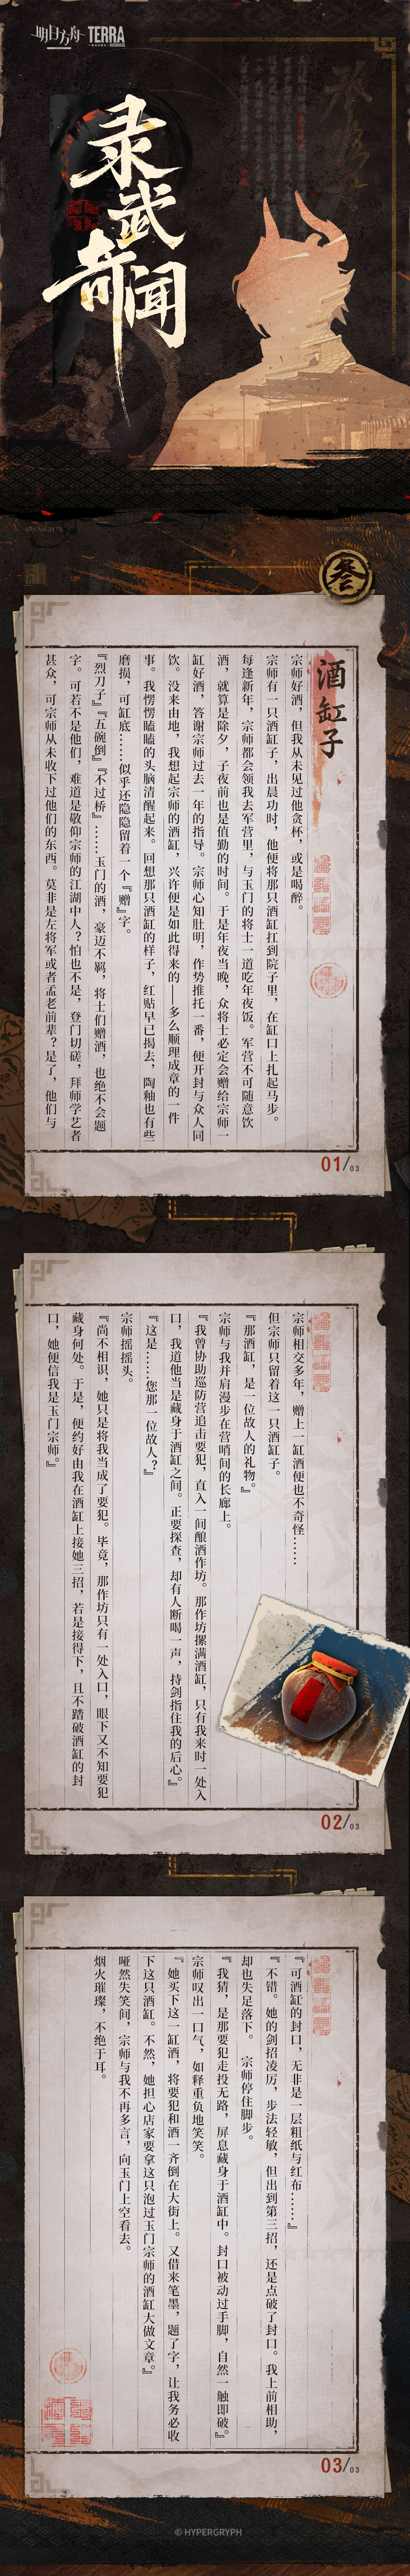 明日方舟 TERRA
录武奇闻
叁
酒缸子
宗师好酒，但我从未见过他贪杯，或是喝醉。
宗师有一只酒缸子，出晨功时，他便将那只酒缸扛到院子里，在缸口上扎起马步。
每逢新年，宗师都会领我去军营里，与玉门的将士一道吃年夜饭。军营不可随意饮
酒，就算是除夕，子夜前也是值勤的时间。于是年夜当晚，众将士必定会赠给宗师一
缸好酒，答谢宗师过去一年的指导。宗师心知肚明，作势推托一番，便开封与众人同
饮。没来由地，我想起宗师的酒缸，兴许便是如此得来的——多么顺理成章的一件
事。我愣愣瞌瞌的头脑清醒起来。回想那只酒缸的样子，红贴早已揭去，陶釉也有些
磨损，可缸底……似乎还隐隐留着一个『赠』字。
『烈刀子』『五碗倒』『不过桥』……玉门的酒，豪迈不羁，将士们赠酒，也绝不会题
字。可若不是他们，难道是敬仰宗师的江湖中人？怕也不是，登门切磋，拜师学艺者
甚众，可宗师从未收下过他们的东西。莫非是左将军或者孟老前辈？是了，他们与
01/03
宗师相交多年，赠上一缸酒便也不奇怪……
但宗师只留着这一只酒缸子。
『那酒缸，是一位故人的礼物。』
宗师与我并肩漫步在营哨间的长廊上。
『我曾协助巡防营追击要犯，直入一间酿酒作坊。那作坊摞满酒缸，只有我来时一处入
口，我道他当是藏身于酒缸之间。正要探查，却有人断喝一声，持剑指住我的后心。』
『这是……您那一位故人？』
宗师摇摇头。
『尚不相识，她只是将我当成了要犯。毕竟，那作坊只有一处入口，眼下又不知要犯
藏身何处。于是，便约好由我在酒缸上接她三招，若是接得下，且不踏破酒缸的封
口，她便信我是玉门宗师。』
02/03
『可酒缸的封口，无非是一层粗纸与红布……』
『不错。她的剑招凌厉，步法轻敏，但出到第三招，还是点破了封口。我上前相助，
却也失足落下。』宗师停住脚步。
『我猜，是那要犯走投无路，屏息藏身于酒缸中。封口被动过手脚，自然一触即破。』
宗师叹出一口气，如释重负地笑笑。
『她买下这一缸酒，将要犯和酒一齐倒在大街上。又借来笔墨，题了字，让我务必收
下这只酒缸。不然，她担心店家要拿这只泡过玉门宗师的酒缸大做文章。』
哑然失笑间，宗师与我不再多言，向玉门上空看去。
烟火璀璨，不绝于耳。
03/03
© HYPERGRYPH